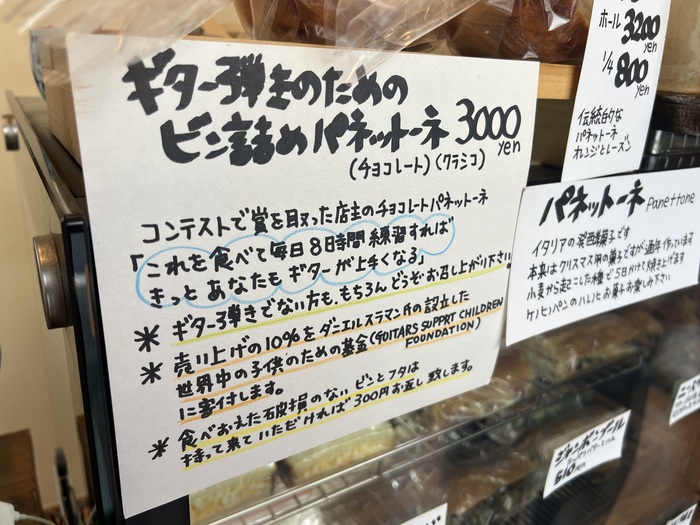 ギター弾きのための
ビン詰めパネットーネ 3000 yen
(チョコレート)(クラシコ)
コンテストで賞を取った店主のチョコレートパネットーネ
「これを食べて毎日8時間練習すれば
きっとあなたもギターが上手くなる」
* ギター弾きでない方も、もちろんどうぞお召し上がり下さい。
* 売り上げの10%をダニエルスラマン氏の設立した
世界中の子供のための基金(GUITARS SUPPRT CHILDREN
FOUNDATION)
に寄付します。
* 食べおえた破損のないビンとフタは
持って来ていただければ300円お返し致します。
ホール 3200 yen
1/4 800 yen
伝統的な
パネットーネ
オレンジとレーズン
パネットーネ Panettone
イタリアの発酵菓子です
本来はクリスマス用の菓子ですが通年作っています
小麦から起こした種で5日かけて焼き上げます
ケーキとパンのハレの日お菓子お楽しみ下さい
ジャンボンブール
510 yen